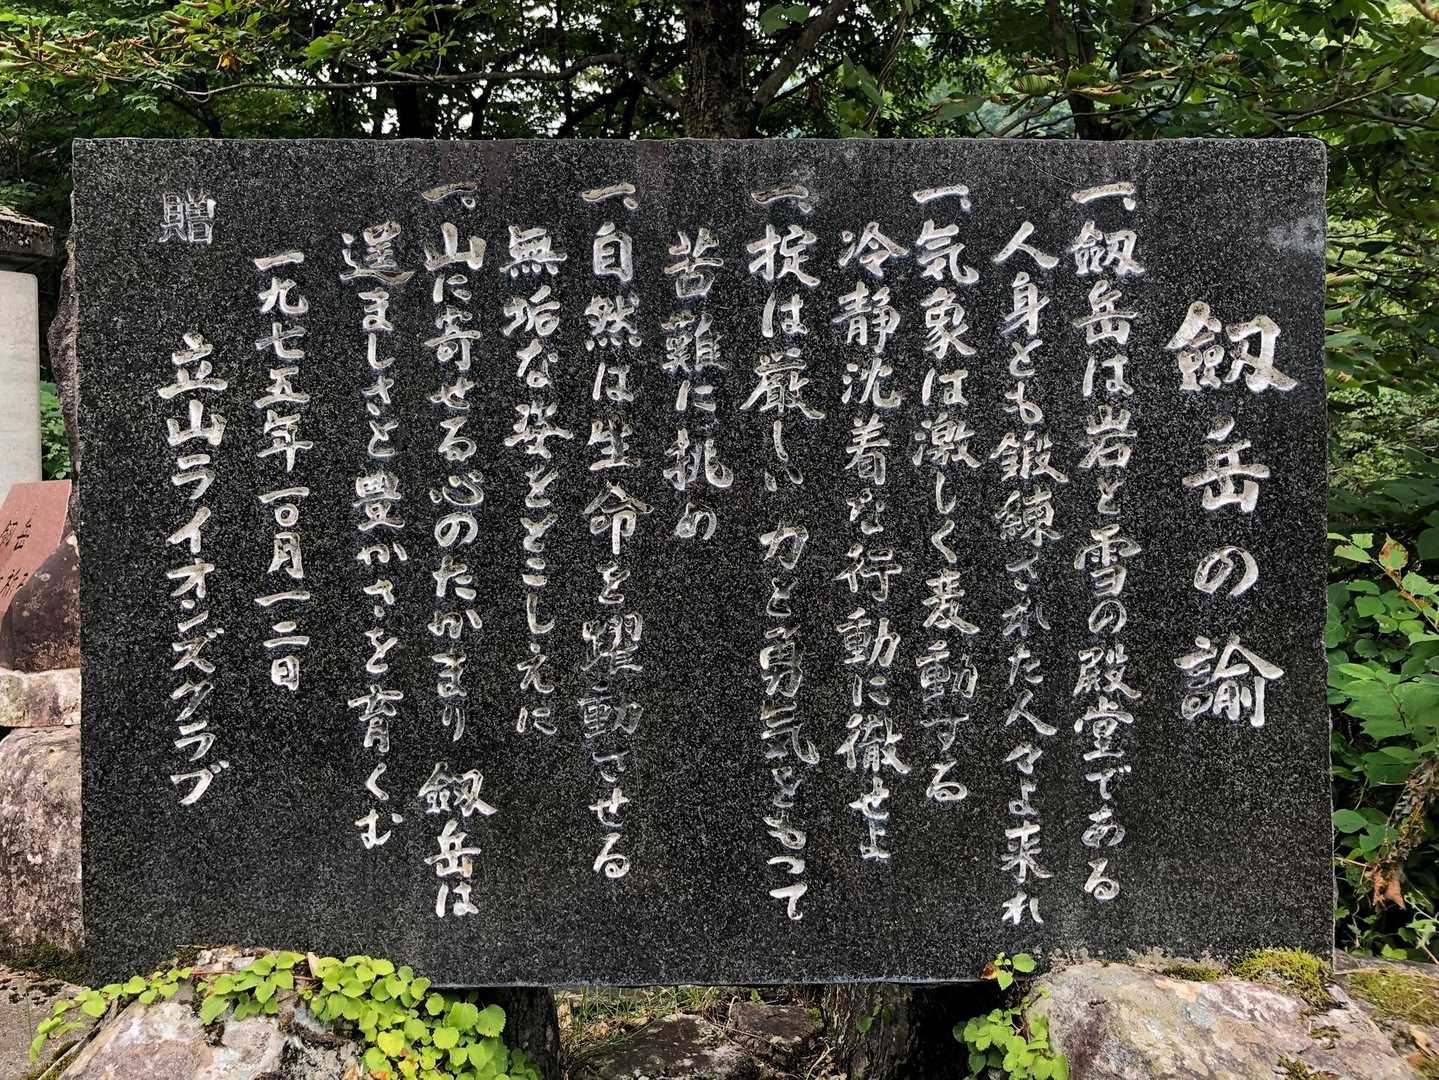 劔岳の諭
一、劔岳は岩と雪の殿堂である
人身とも鍛練された人々よ来れ
一、気象は激しく変動する
冷静沈着な行動に徹せよ
一、掟は厳しい 力と勇気ともって
苦難に挑め
一、自然は生命を躍動させる
無垢な姿をとこしえに
一、山に寄せる心のたかまり 劔岳は
逞ましさと豊かさを育くむ
一九七五年一〇月一二日
贈 立山ライオンズクラブ
劔岳